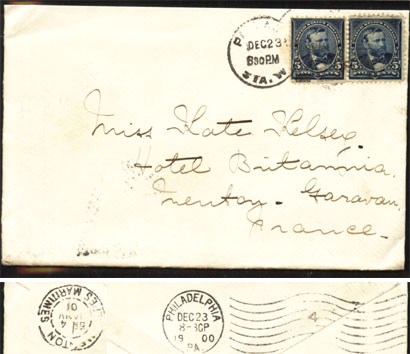 DEC 23
830PM
STA. W
5 5 5 5
Miss Kate Kelsey.
Hotel Britannia.
Menton - Garavan.
France.
MENTON
4
01
ALPES MARITIMES
PHILADELPHIA
DEC 23
8-30P
1900
PA.
4